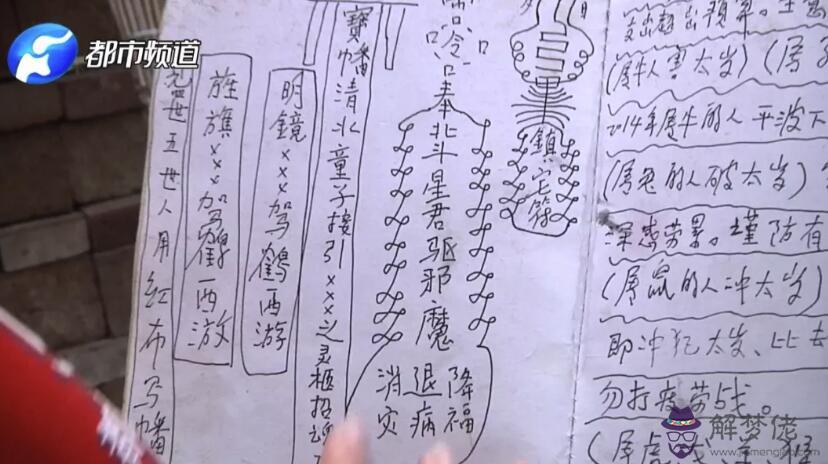 都市频道
五世人用红布写幡
旌旗×××驾鹤西游
明镜×××驾鹤西游
寶幡清北童子接引×××之灵柩招
奉北斗星君驱邪魔
降福
退病
消灾
鎮宅符
(属牛人害太岁)(属
2014年属牛的人平波下
(属兔的人破太岁)
深感劳累。谨防有
(属鼠的人冲太岁)
即冲犯太岁、比去
勿打疲劳战。
(属虎
解梦佬